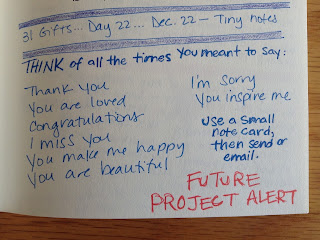 31 Gifts... Day 22... Dec. 22 — Tiny notes
THINK of all the times you meant to say:
Thank You
You are loved
Congratulations
I miss You
You make me happy
You are beautiful
I'm Sorry
You inspire me
Use a Small
note card,
then send or
email.
FUTURE
PROJECT ALERT